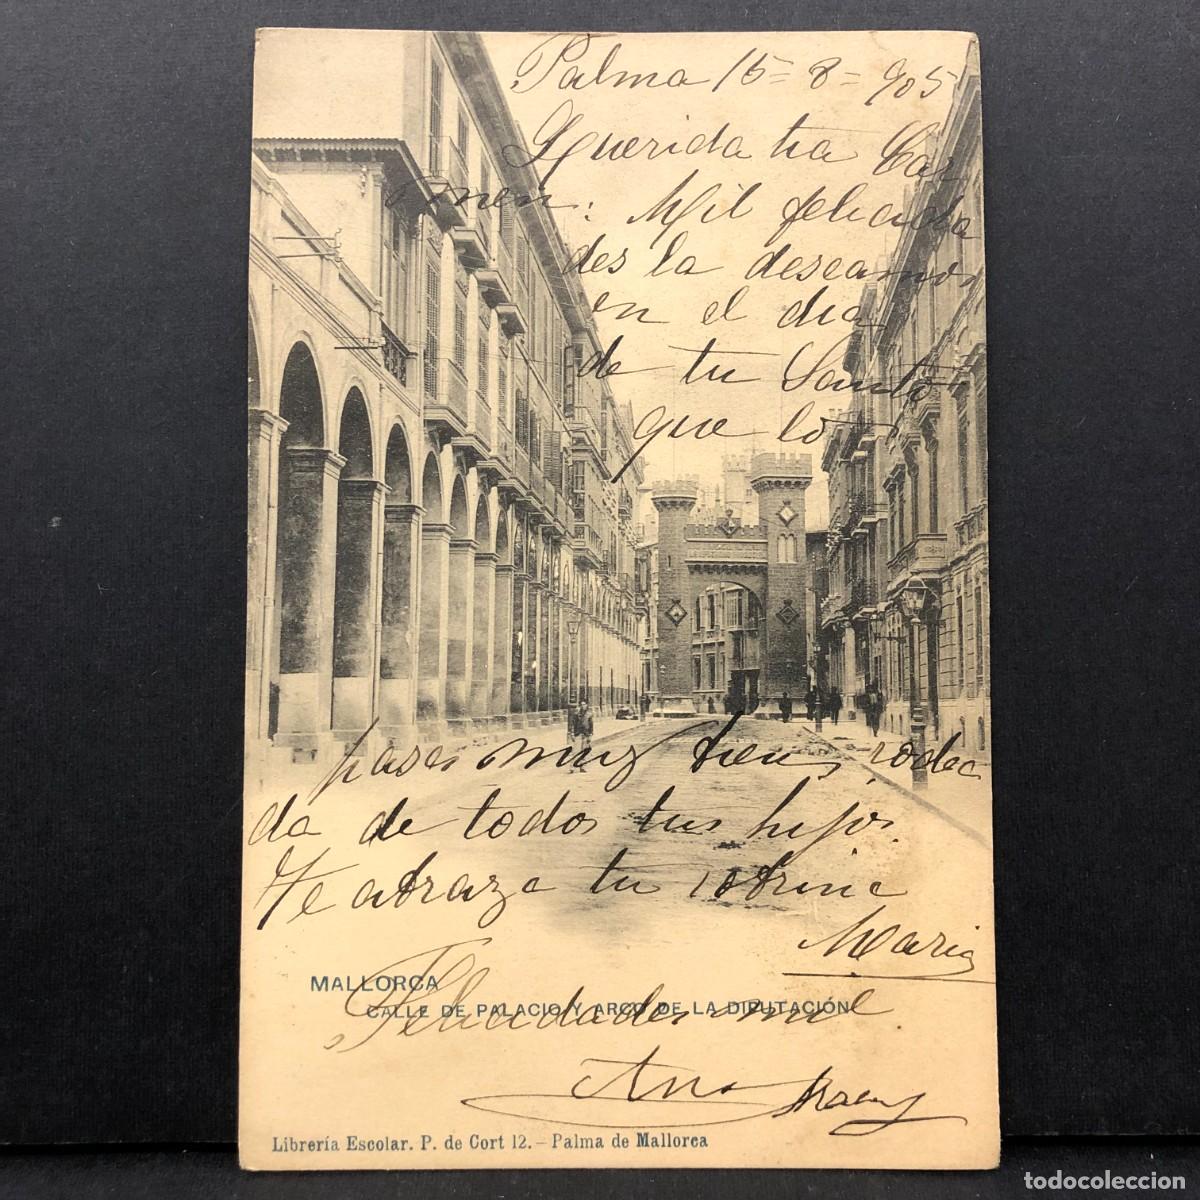 Palma 15=8=905
Querida tia Car
men: Mil felicida
des la deseamos
en el dia
de tu Santo
que lo
pases muy bien rodea
da de todos tus hijos.
Te abraza tu sobrina
Maria
MALLORCA
CALLE DE PALACIO Y ARCO DE LA DIPUTACIÓN
Felicidades mil
Ana
Librería Escolar. P. de Cort 12.–Palma de Mallorca
todocoleccion